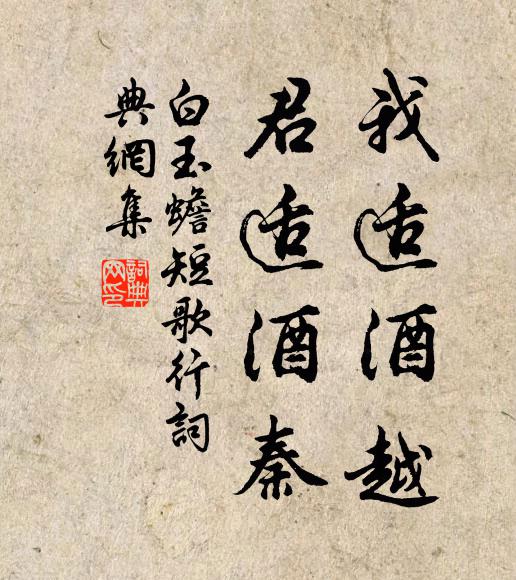 我适酒越
君适酒秦
白玉蟾短歌行詞
典網集
詞典
网印